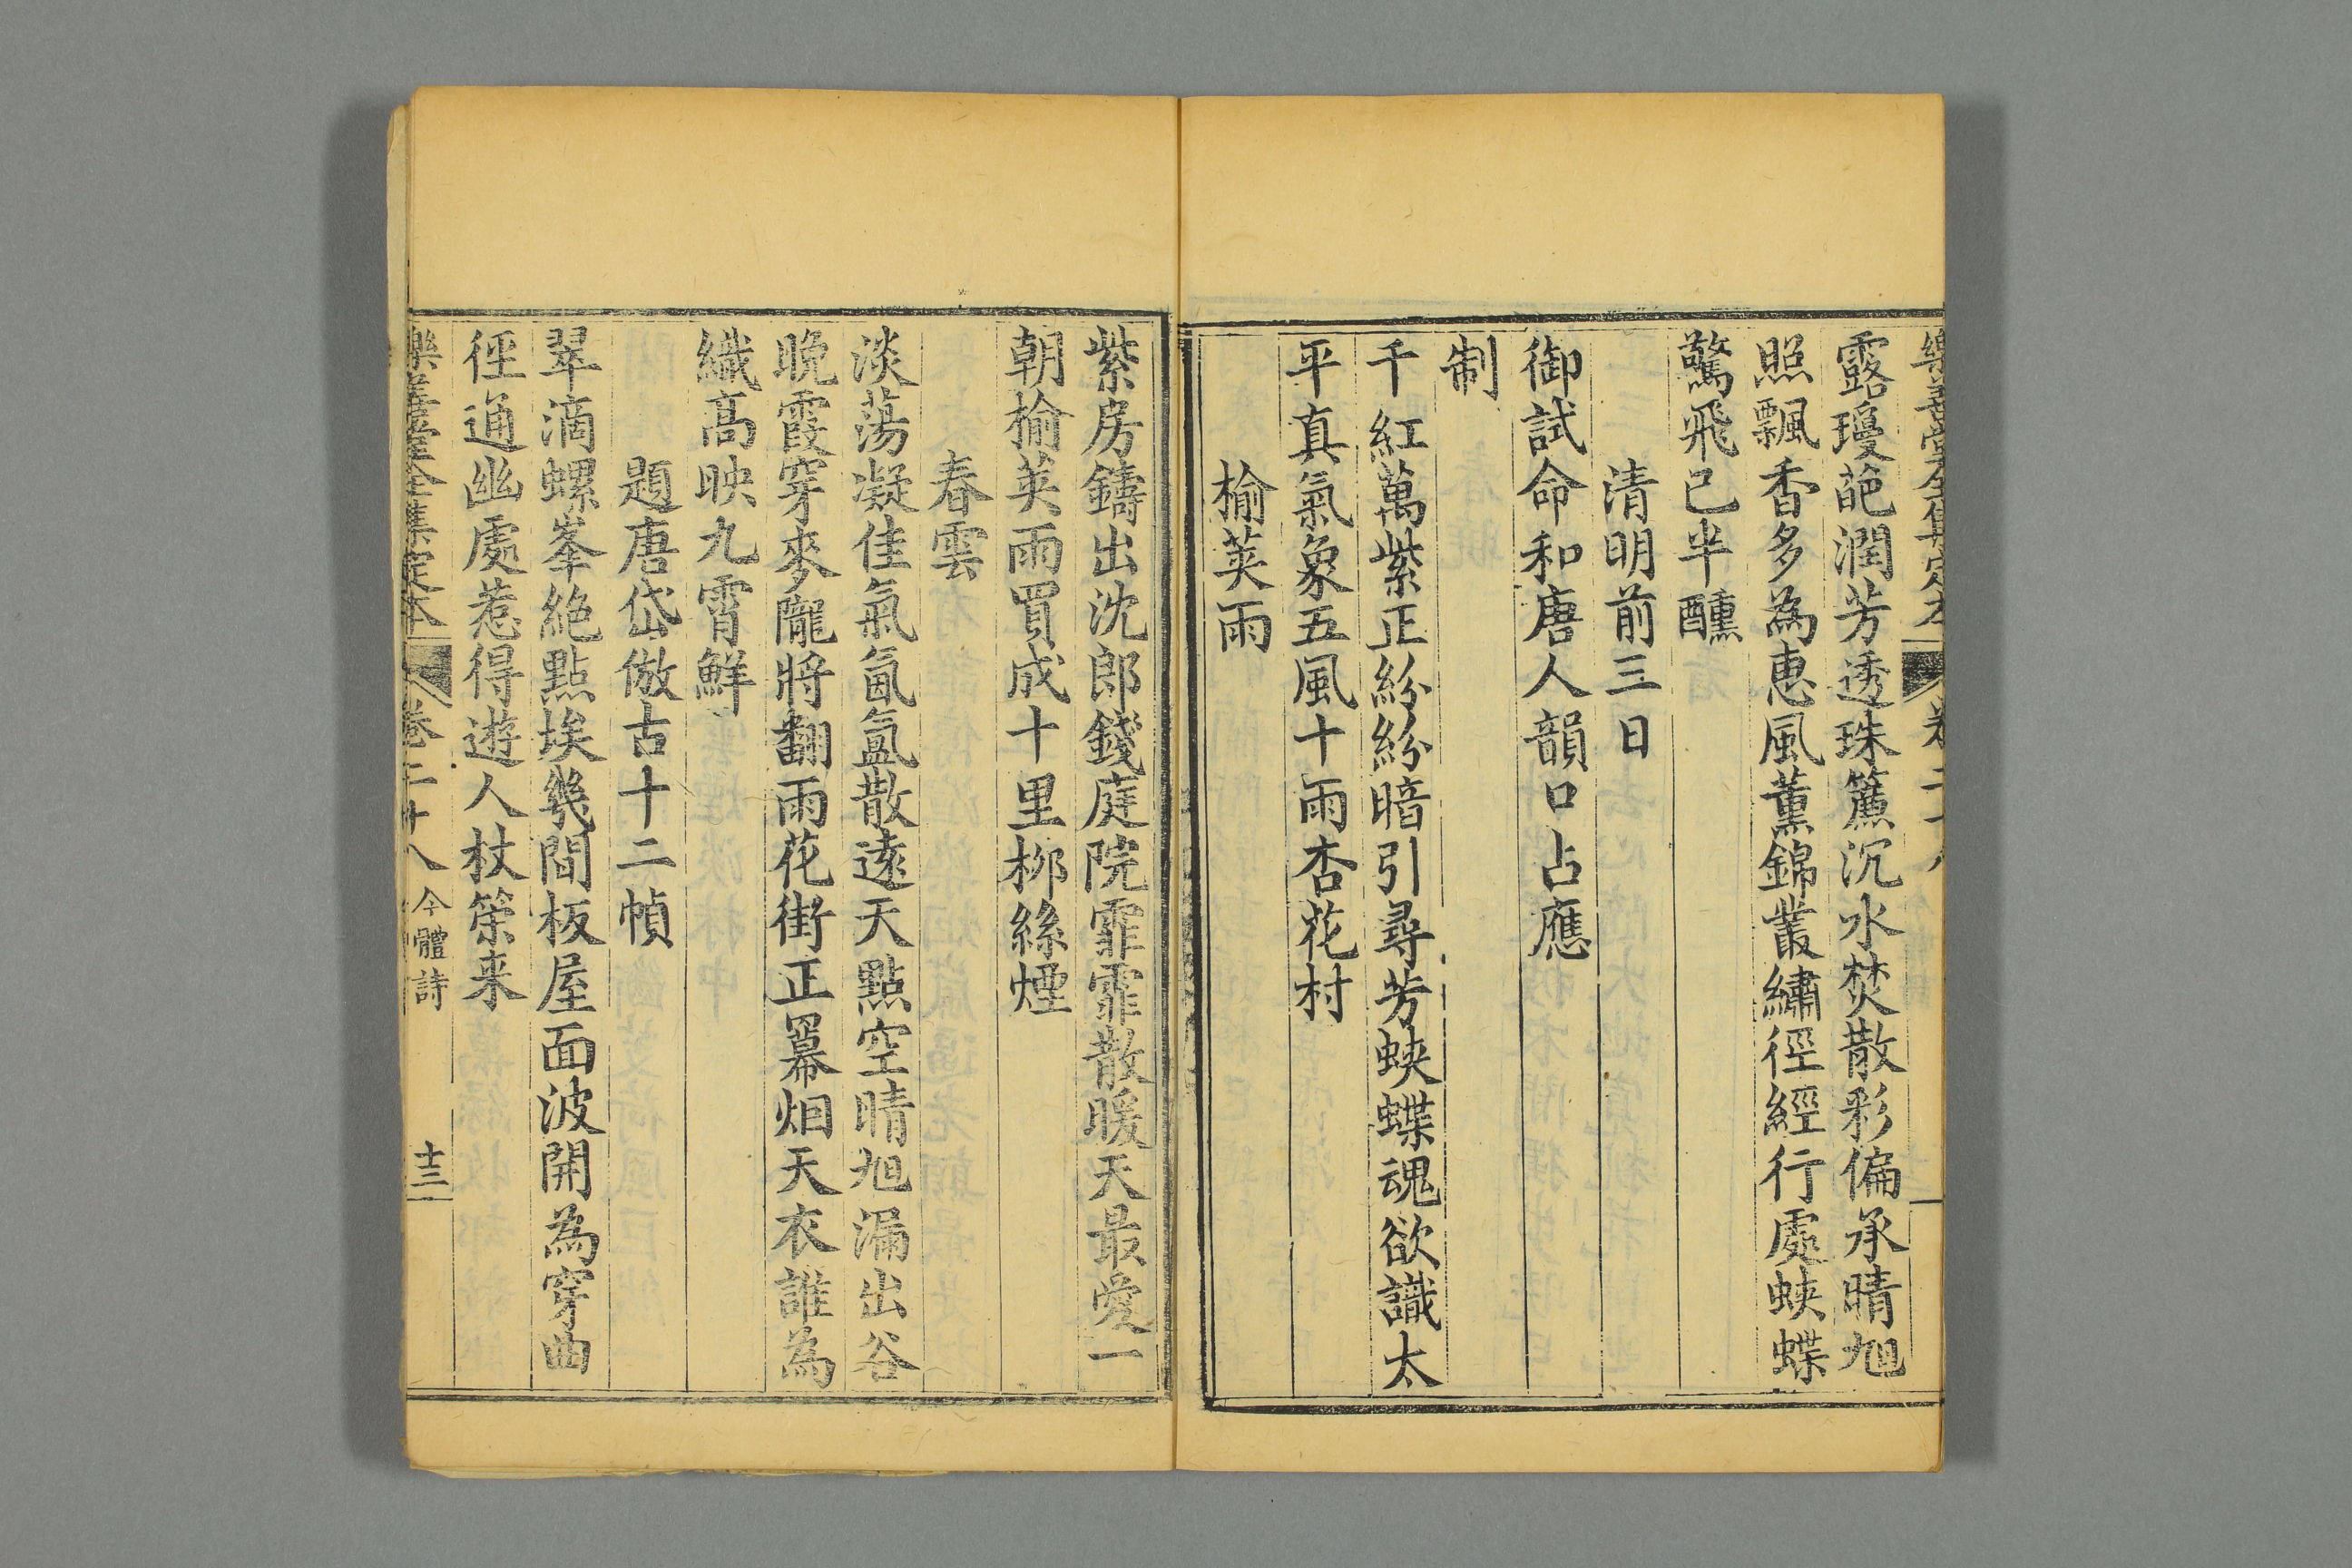 樂善堂全集定本 卷二十八
露瓊葩潤芳透珠簾沉水焚散彩偏承晴旭
照飄香多為惠風薰錦叢繡徑經行處蛺蝶
驚飛已半醺
清明前三日
御試命和唐人韻口占應
制
千紅萬紫正紛紛暗引尋芳蛺蝶魂欲識太
平真氣象五風十雨杏花村
榆莢雨
紫房鑄出沈郎錢庭院霏霏散暖天最愛一
朝榆莢雨買成十里柳絲煙
春雲
淡蕩凝佳氣氤氳散遠天點空晴旭漏出谷
晚霞穿麥隴將翻雨花街正羃烟天衣誰為
織高映九霄鮮
題唐岱倣古十二幀
翠滴螺峯絶點埃幾間板屋面波開為穿曲
徑通幽處惹得遊人杖策来
樂善堂全集定本 卷二十八 今體詩 十三